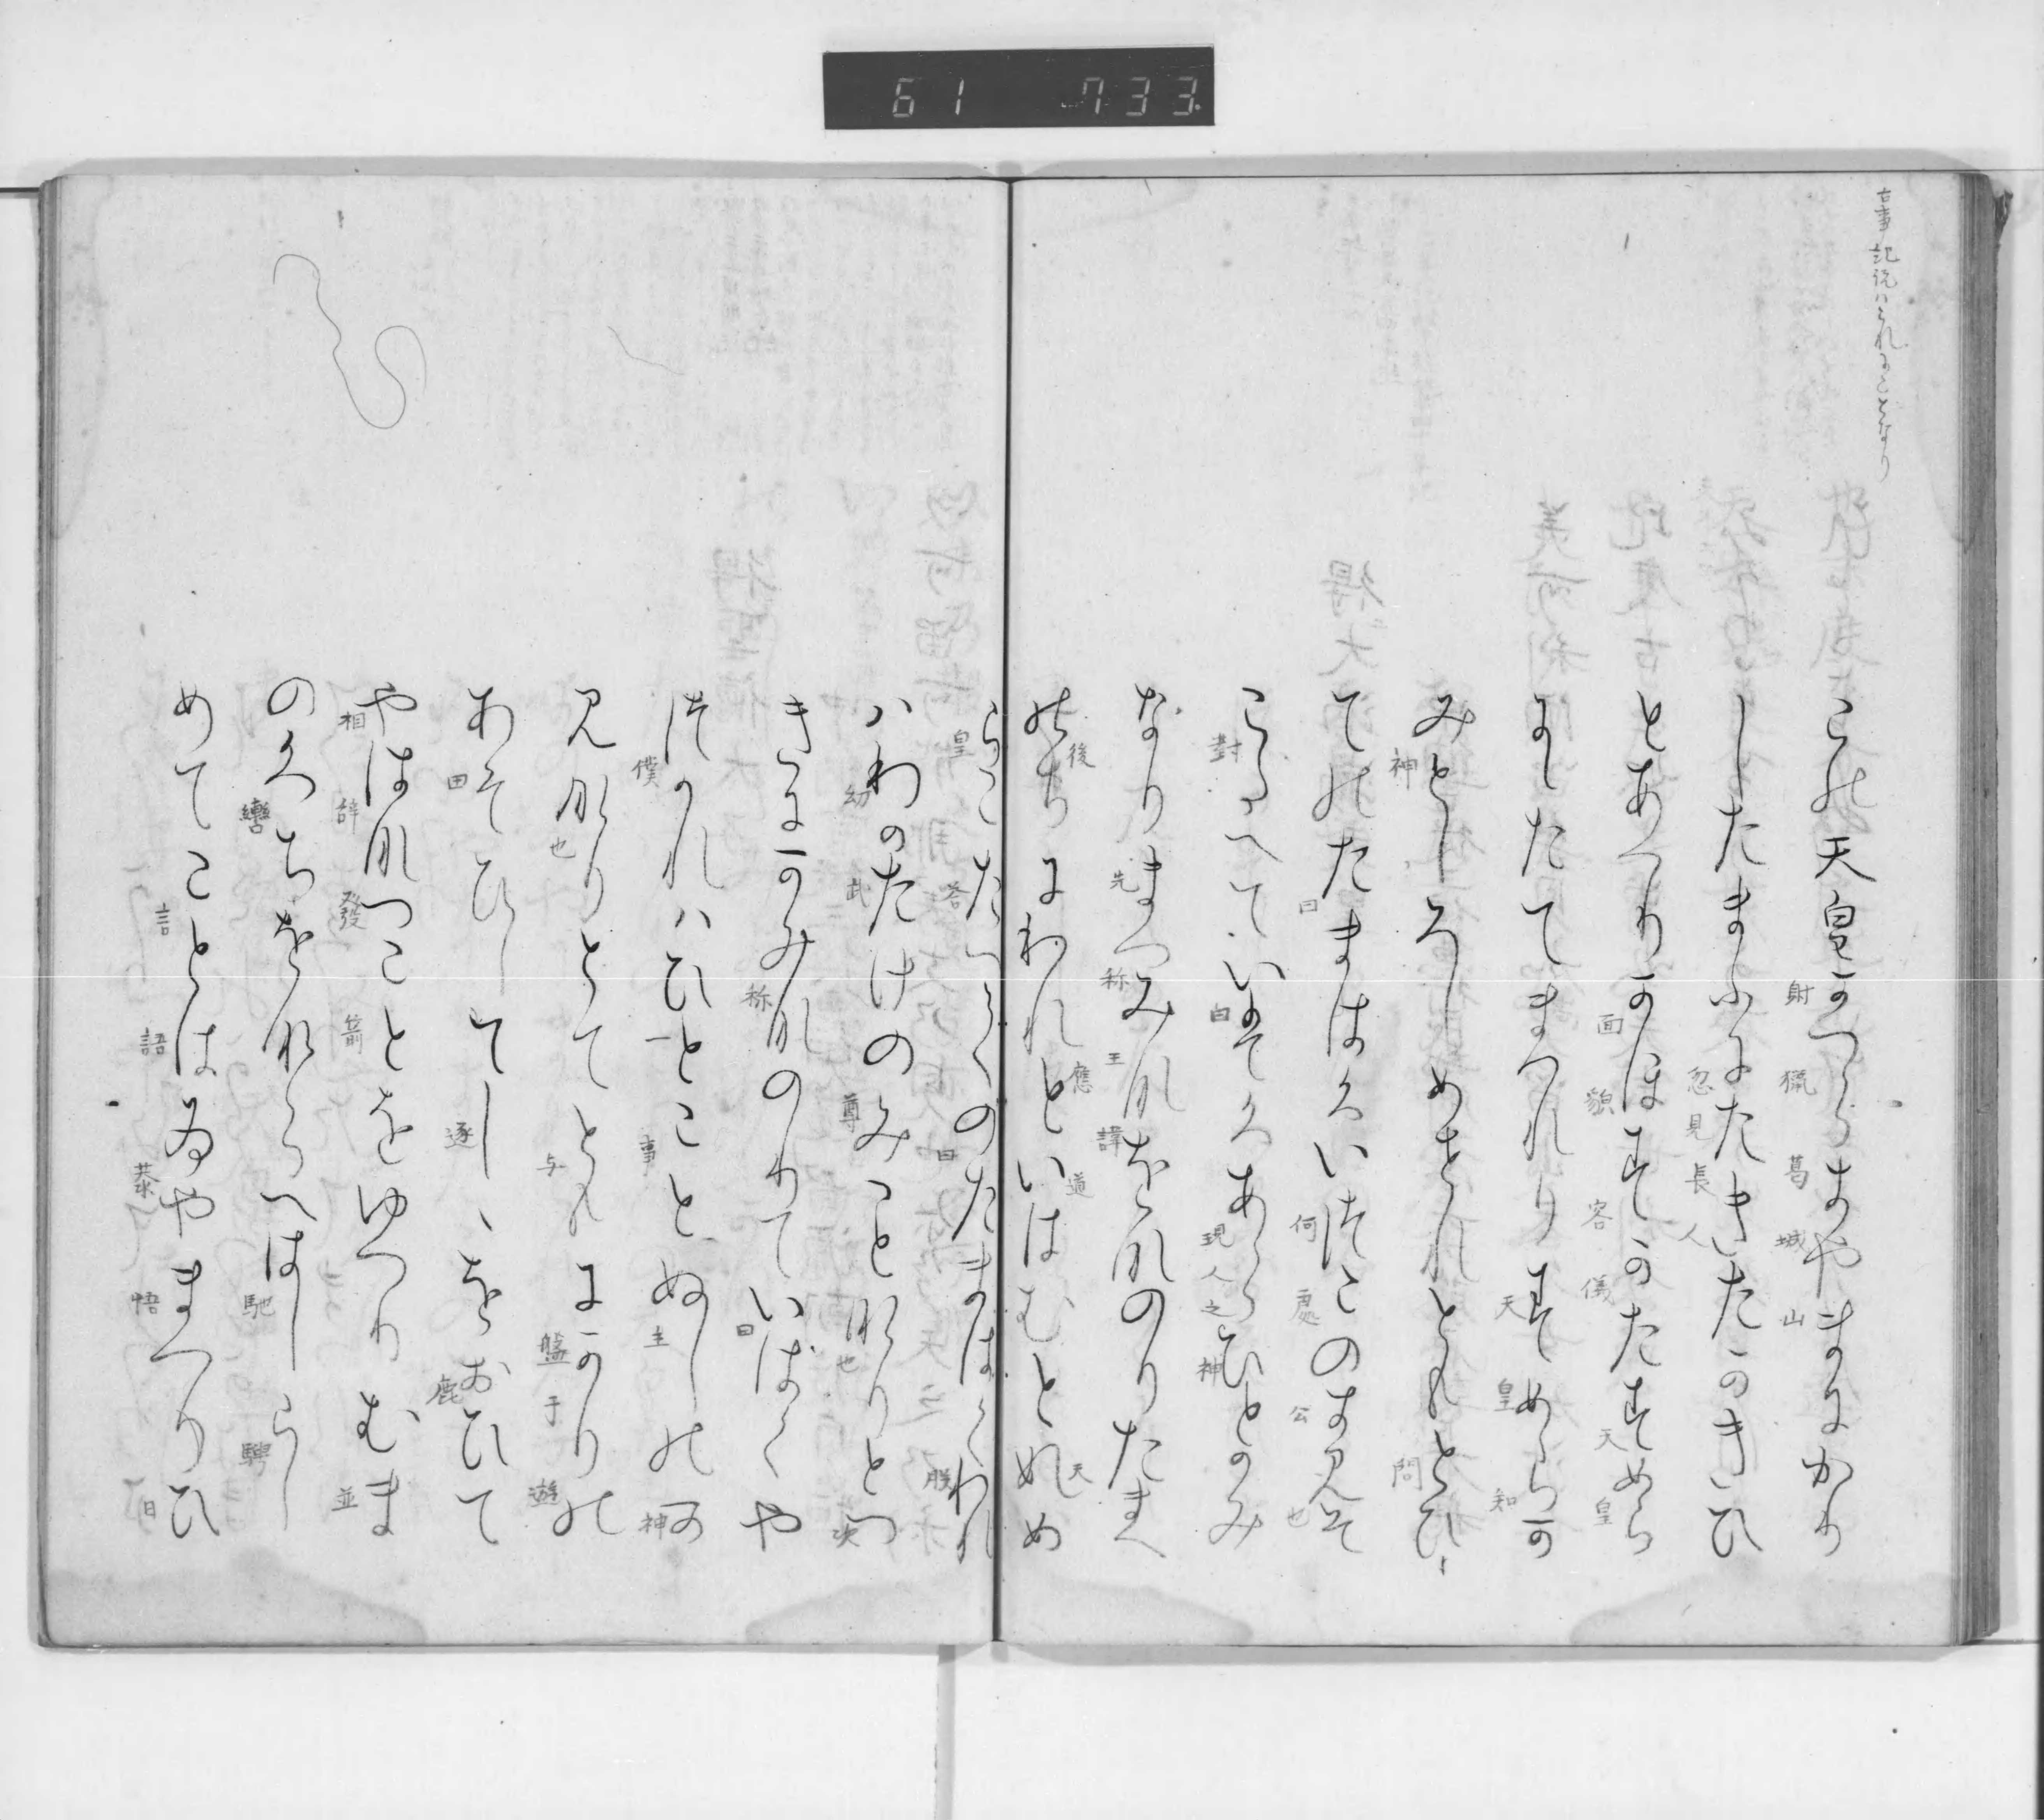 古事記説ハこれにことなり
この天皇かつらきやまにかり
射 猟 葛 城 山
したまふにたきたかきひ
忽見長人
とあへりかほすかたすめら
面貌容儀天皇
にたてまつれりすめらか
天皇知
みとしろしめせれともとひ
神 問
てのたまはくいつこのきみそ
曰 何處公也
こたへていはくあらひとかみ
對 曰 現人之神
なりまつみなをなのりたまへ
先称王諱
のちにわれといはむとなめ
後 應 道 天
らこたへてのたまはくわれ
皇 答 曰 朕
ハわかたけのみことなりとつ
幼 武 尊 也 次
きにかみなのりていはくや
称 曰
つかれハひとことぬしの神
僕 一 事 主 神
見なりとてともにかりの
也 与 盤于遊
あそひしてしゝをおひて
田 逐 鹿
やはなつことをゆつりむま
相 辞 發 箭 並
のくちをならへはしらし
轡 馳 騁
めてことはゐやまつりひ
言 語 恭 恪 一日